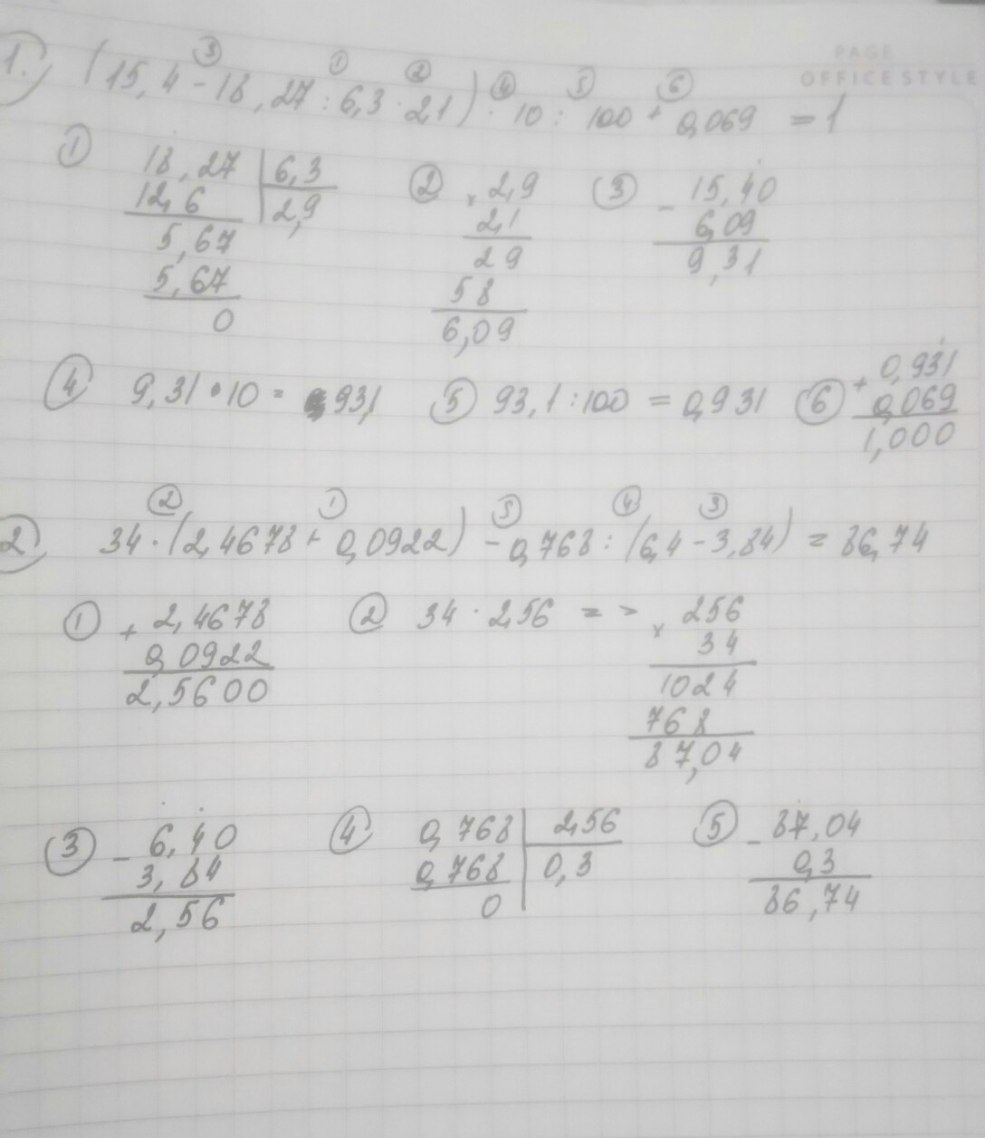 PAGE
OFFICE STYLE
③ ① ② ④ 5 ⑥
1.) (15,4 - 18,27 : 6,3 · 2,1) · 10 : 100 + 0,069 = 1
① 18,27 | 6,3
12,6 | 2,9
5,67
5,67
0
② × 2,9
2,1
29
58
6,09
③ - 15,40
6,09
9,31
④ 9,31 · 10 = 93,1
⑤ 93,1 : 100 = 0,931
⑥ + 0,931
0,069
1,000
② 1 ⑤ ④ ③
2) 34 · (2,4678 + 0,0922) - 0,768 : (6,4 - 3,84) = 86,74
① + 2,4678
0,0922
2,5600
② 34 · 2,56 = > × 256
34
1024
768
87,04
③ - 6,40
3,84
2,56
④ 0,768 | 2,56
0,768 | 0,3
0
⑤ - 87,04
0,3
86,74